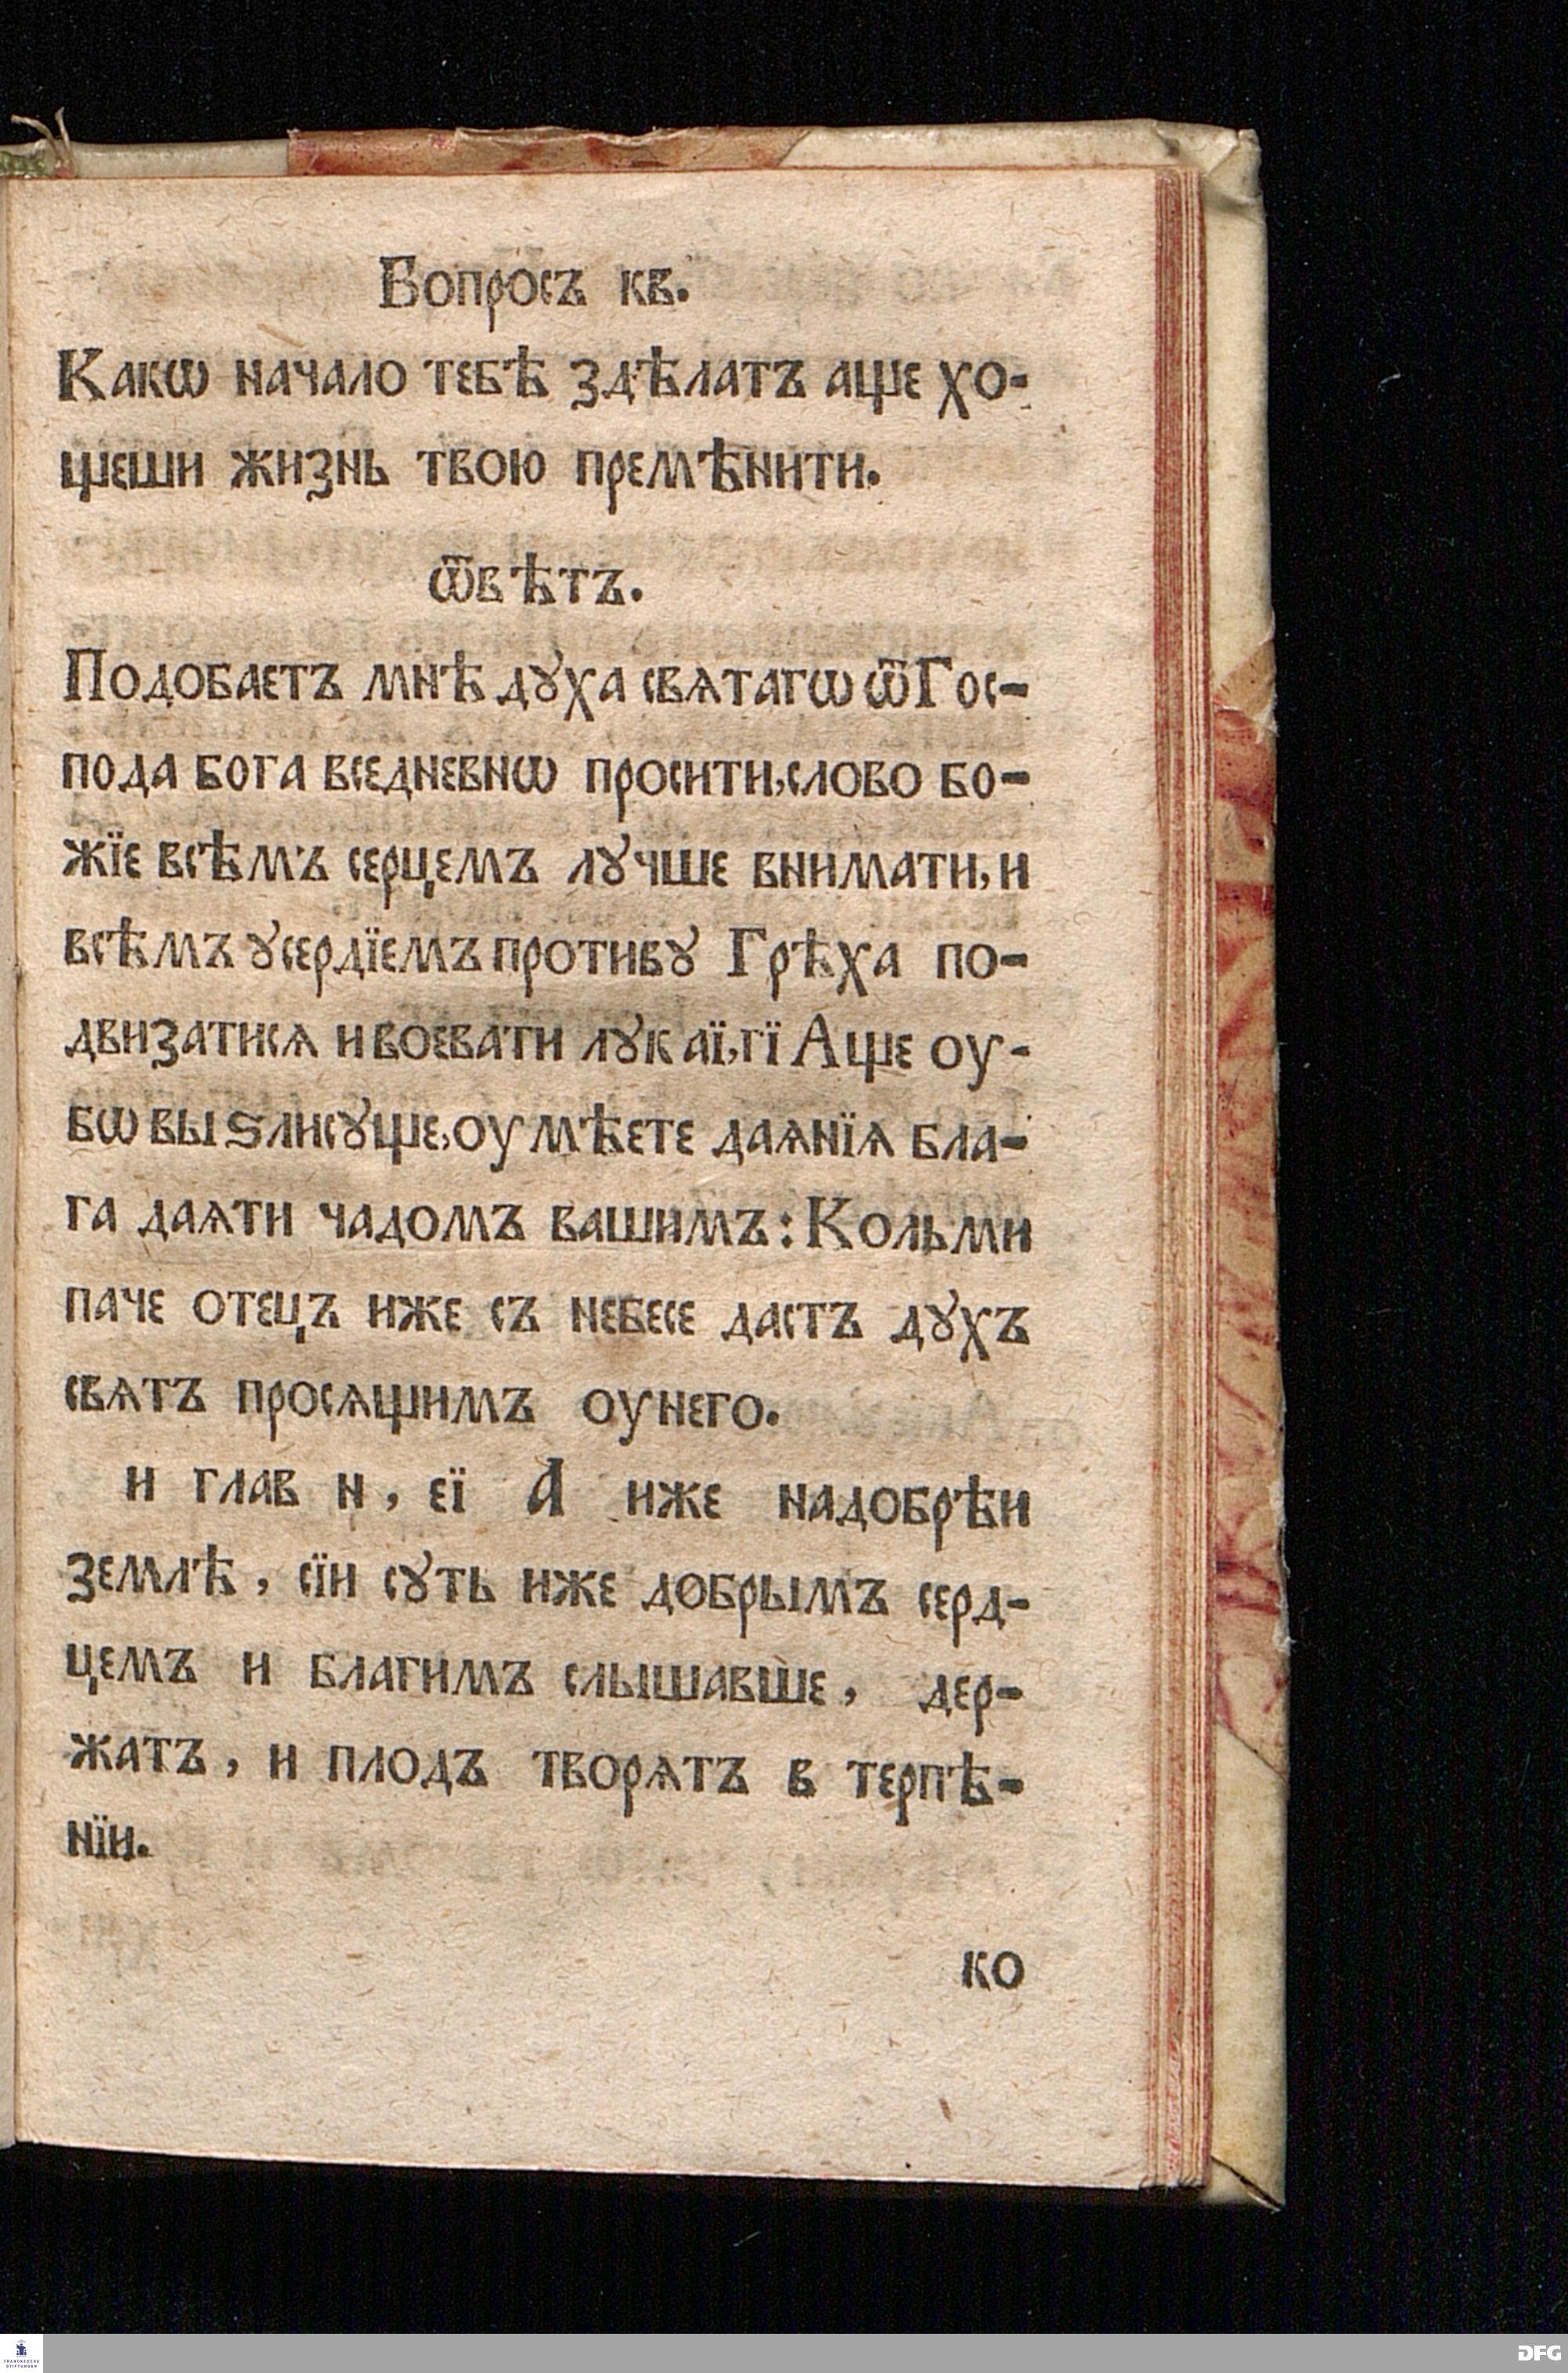 Вопросъ кв.
Какѡ начало тебѣ здѣлатъ аще хо-
щеши жизнь твою премѣнити.
ѿвѣтъ.
Подобаетъ мнѣ дꙋха свѧтагѡ ѿ Гос-
пода бога вседневнѡ просити, слово бо-
жїе всѣмъ серцемъ лꙋчше внимати, и
всѣмъ ꙋсердїемъ противꙋ Грѣха по-
двизатисѧ и воевати лꙋк аї, гї Аще оу-
бѡ вы ѕли сꙋще, оумѣете даѧнїѧ бла-
га даѧти чадомъ вашимъ: Кольми
паче отецъ иже съ небесе дастъ дꙋхъ
свѧтъ просѧщимъ оунего.
и глав и, еї А иже надобрѣи
землѣ, сїи сꙋть иже добрымъ серд-
цемъ и благимъ слышавше, дер-
жатъ, и плодъ творѧтъ в терпѣ-
нїи.
ко
FRANCKESCHE
STIFTUNGEN
DFG